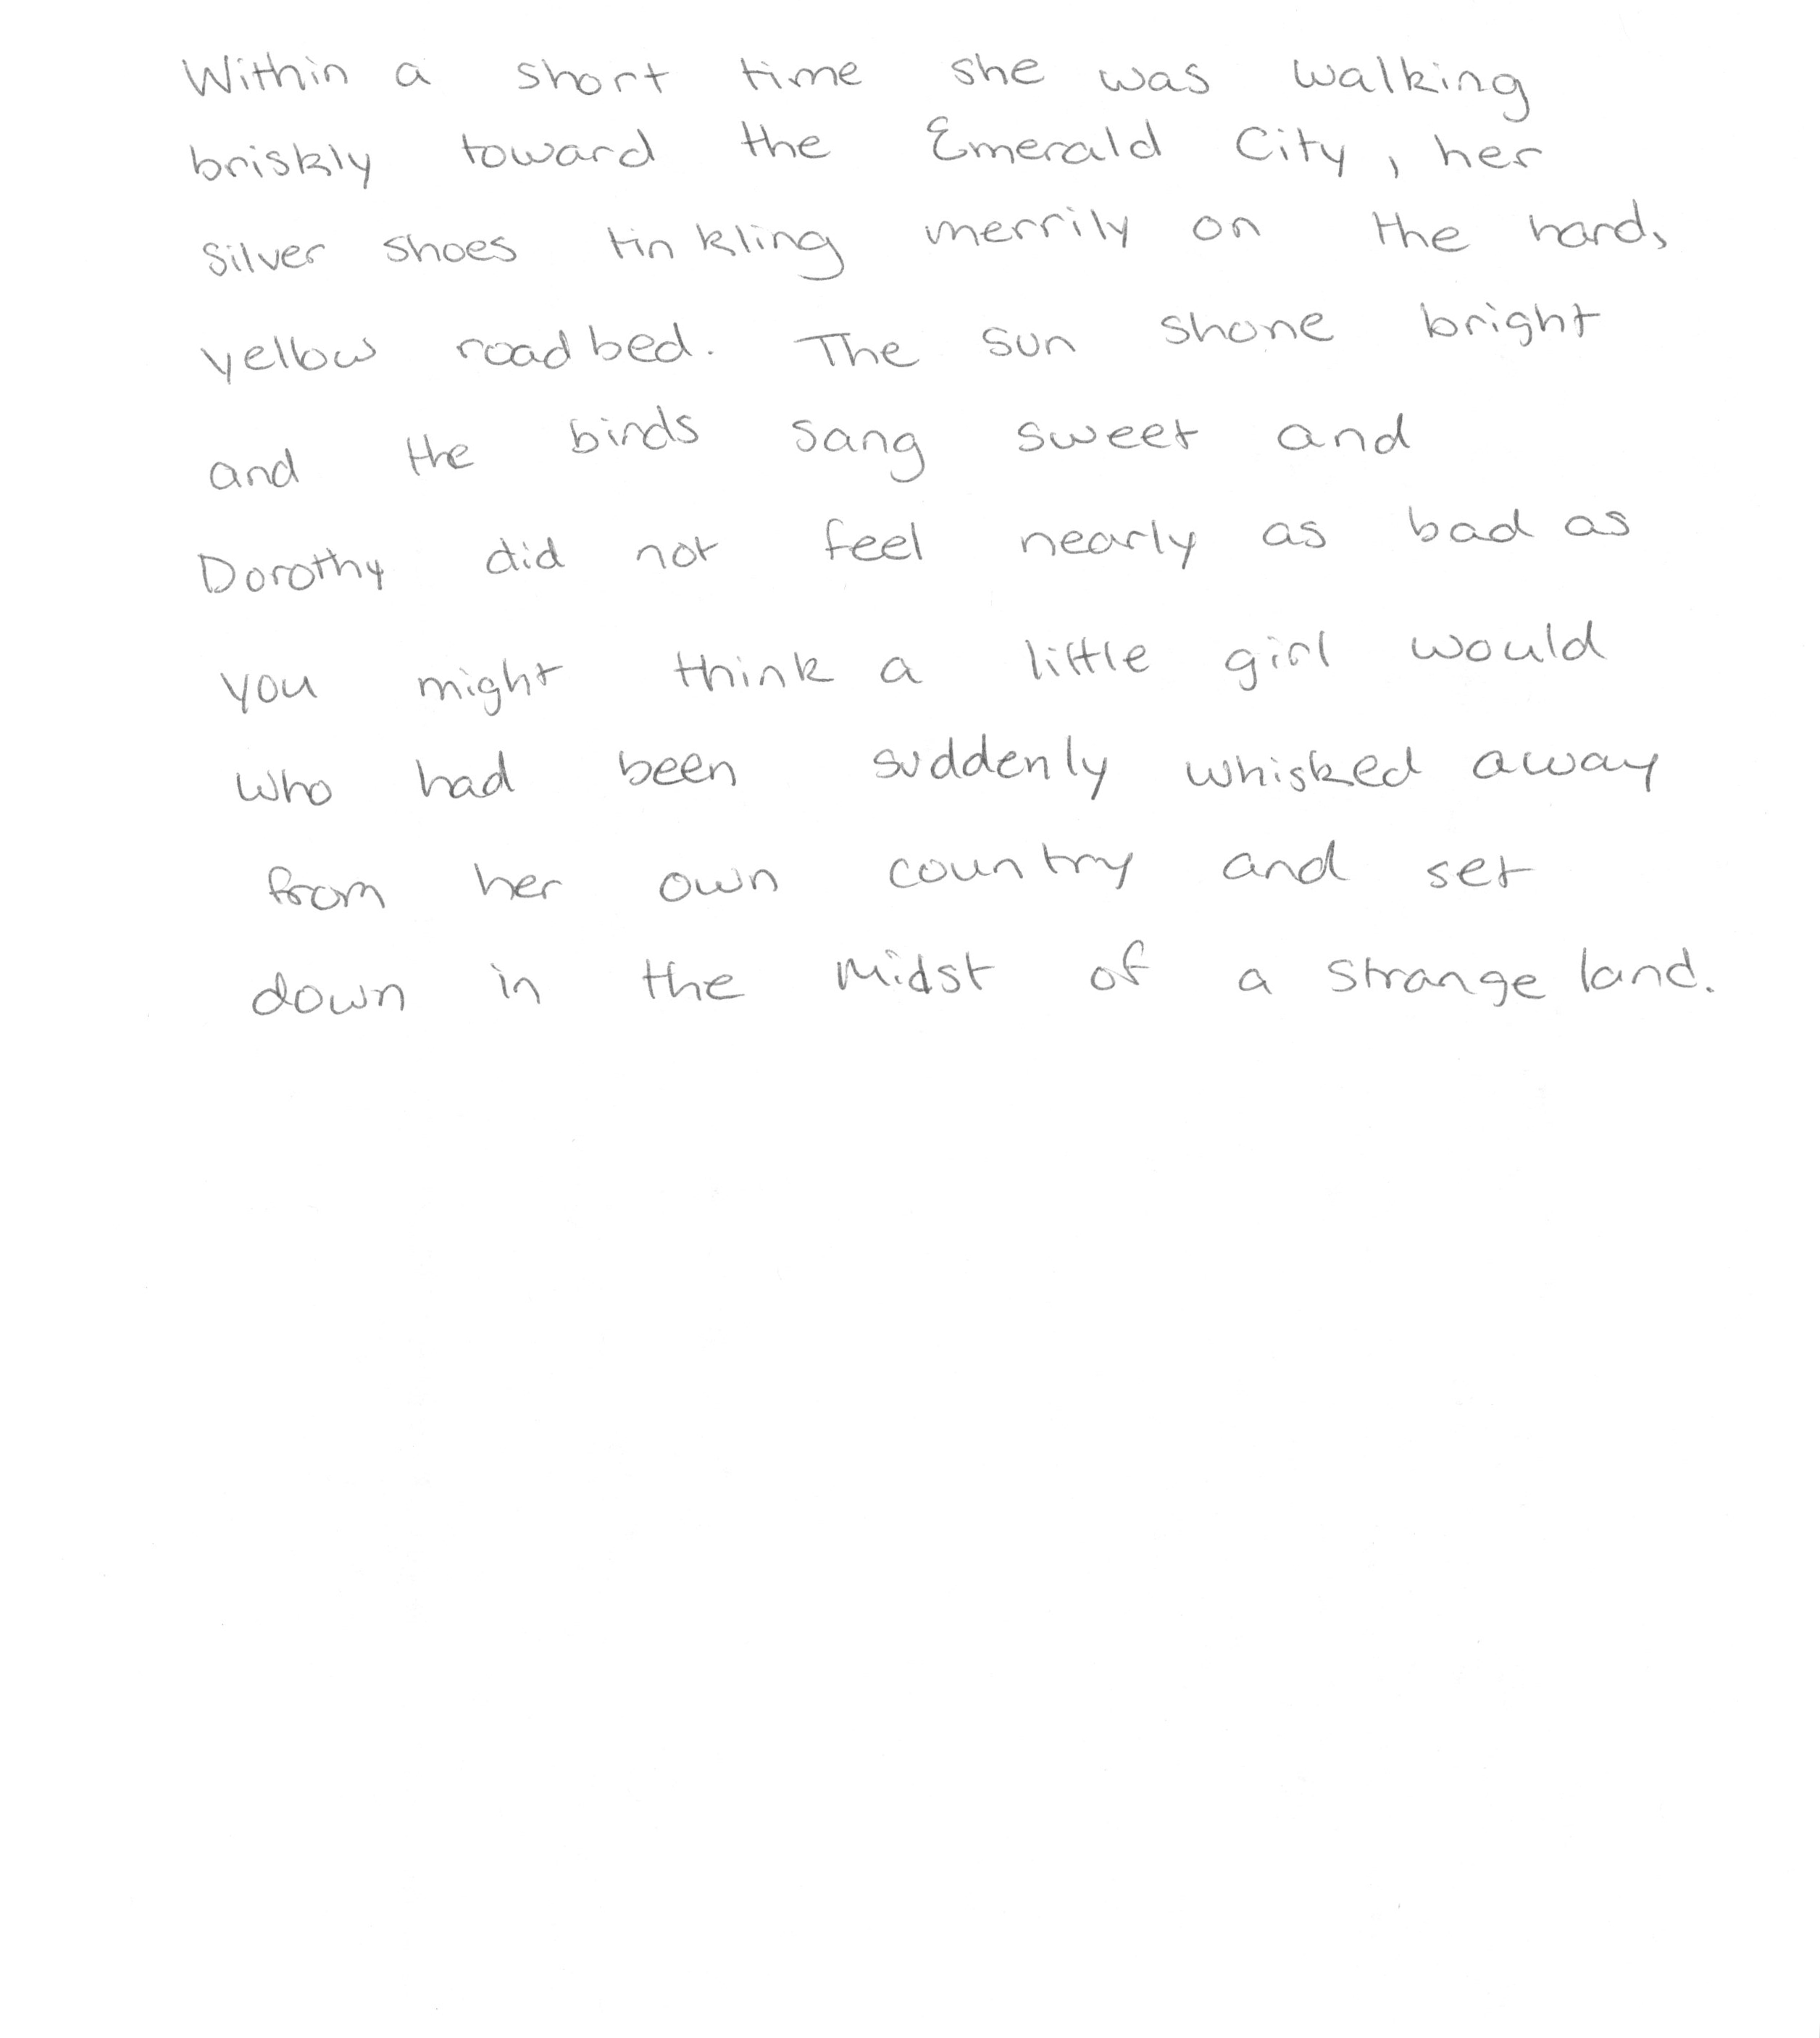 Within a short time she was walking
briskly toward the Emerald City, her
silver shoes tinkling merrily on the hard,
yellow roadbed. The sun shone bright
and the birds sang sweet and
Dorothy did not feel nearly as bad as
you might think a little girl would
who had been suddenly whisked away
from her own country and set
down in the midst of a strange land.